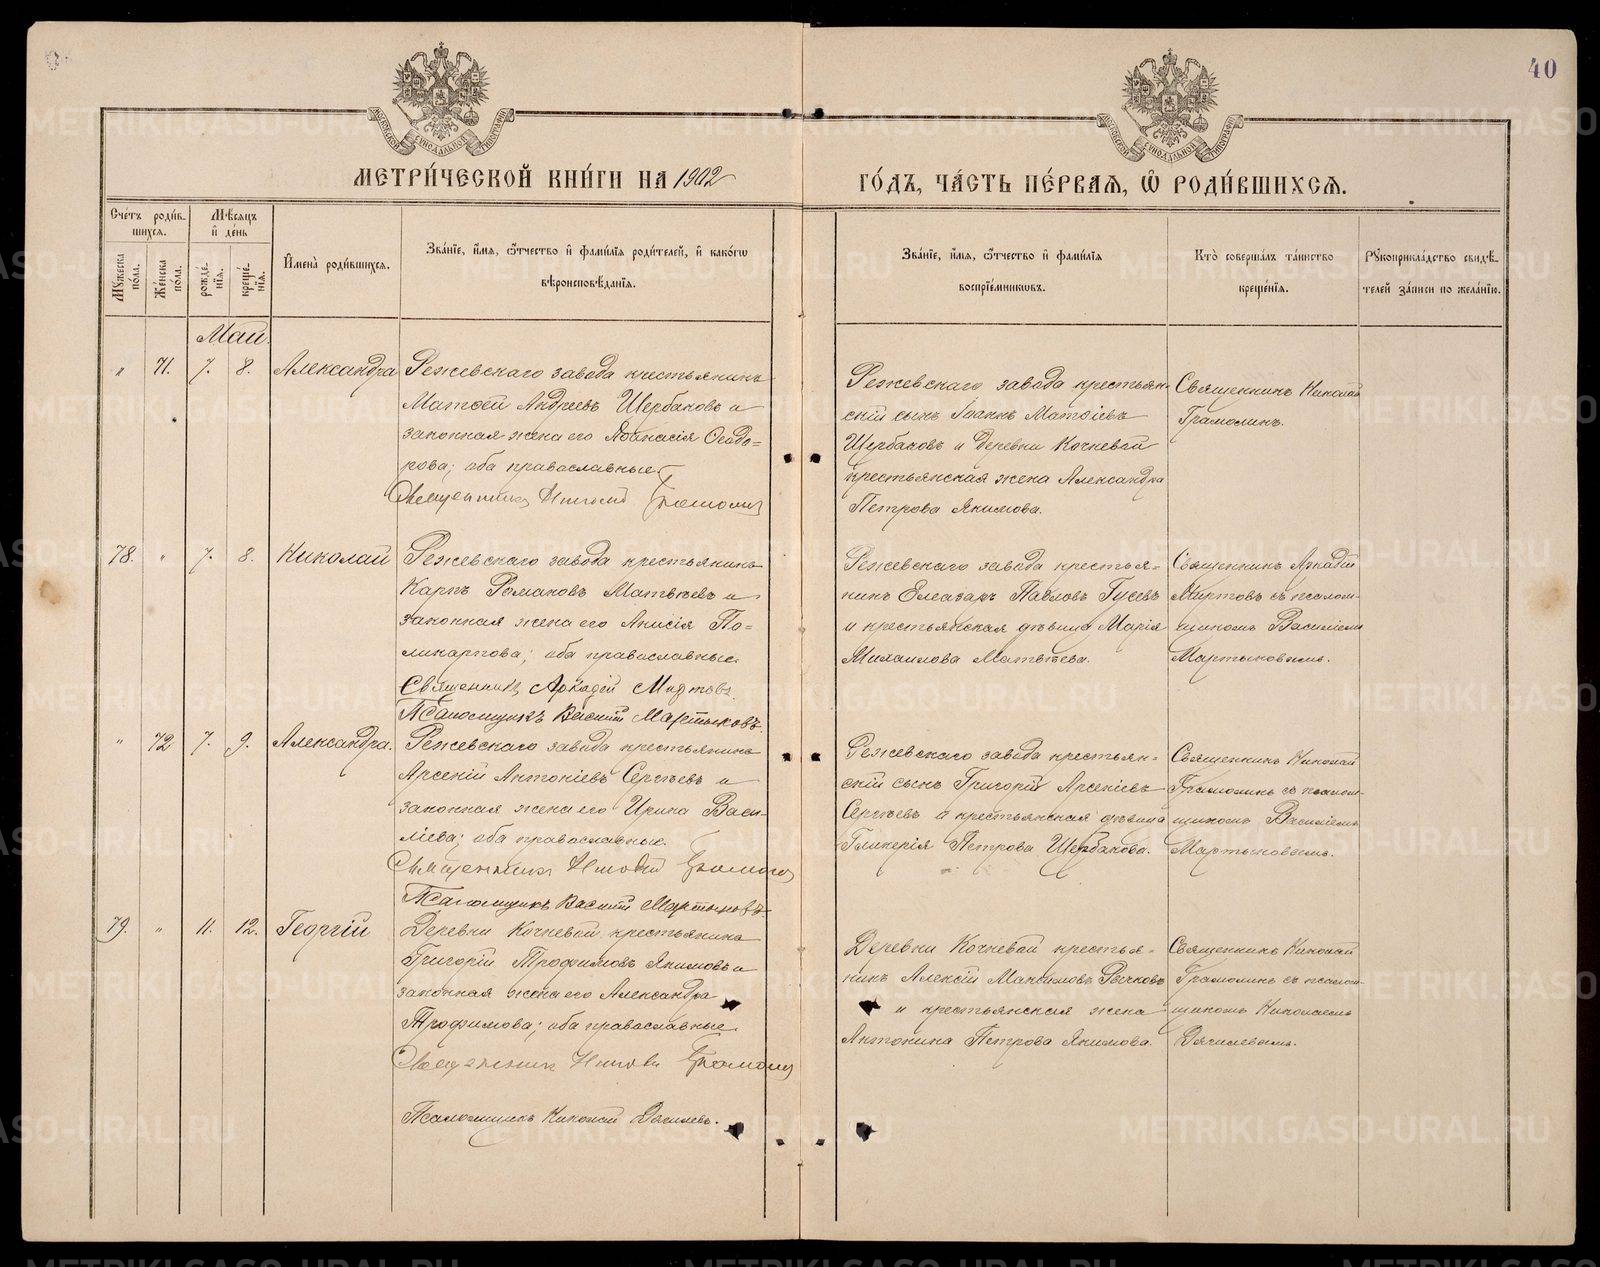 40
МОСКОВСКОЙ СУНОДАЛЬНОЙ ТИПОГРАФІИ
МОСКОВСКОЙ СУНОДАЛЬНОЙ ТИПОГРАФІИ
МЕТРИ́ЧЕСКОЙ КНИ́ГИ НА 1902
ГО́ДЪ, ЧА́СТЬ ПЕ́РВАѦ, Ѡ҆ РОДИ́ВШИХСѦ.
Сче́тъ роди́в-
шихсѧ.
Мꙋжеска
пола.
Же́нска
по́ла.
Мѣ́сѧцъ
и҆ де́нь
рожде́-
нїѧ.
креще́-
нїѧ.
И҆мена̀ роди́вшихсѧ.
Зва́нїе, и҆́мѧ, ѻ҆́тчество и҆ фами́лїѧ роди́телей, и҆ како́гѡ
вѣроисповѣ́данїѧ.
Зва́нїе, и҆́мѧ, ѻ҆́тчество и҆ фами́лїѧ
воспрїе́мникѡвъ.
Кто̀ соверша́лъ та́инство
креще́нїѧ.
Рꙋкоприкла́дство свидѣ́-
телей за́писи по жела́нїю.
Май.
" 71. 7. 8. Александра
Режевскаго завода крестьянинъ
Матѳей Андреевъ Щербаковъ и
законная жена его Аѳанасія Ѳеодо=
рова; оба православные.
Священникъ Николай Грамолинъ
Режевскаго завода крестьян-
скій сынъ Іоаннъ Матѳіевъ
Щербаковъ и деревни Кочневой
крестьянская жена Александра
Петрова Якимова.
Священникъ Николай
Грамолинъ.
78. " 7. 8. Николай
Режевскаго завода крестьянинъ
Карпъ Романовъ Матвѣевъ и
законная жена его Анисія По=
ликарпова; оба православные.
Священникъ Аркадій Миртовъ.
Псаломщикъ Василій Мартыновъ.
Режевскаго завода крестья=
нинъ Елеазаръ Павловъ Гусевъ
и крестьянская дѣвица Марія
Михаилова Матвѣева.
Священникъ Аркадій
Миртовъ съ псалом-
щикомъ Василіемъ
Мартыновымъ.
" 72 7. 9. Александра.
Режевскаго завода крестьянинъ
Арсеній Антоніевъ Сергѣевъ и
законная жена его Ирина Васи-
ліева; оба православные.
Священникъ Николай Грамолинъ
Псаломщикъ Василій Мартыновъ
Режевскаго завода крестьян=
скій сынъ Григорій Арсеніевъ
Сергѣевъ и крестьянская дѣвица
Гликерія Петрова Щербакова.
Священникъ Николай
Грамолинъ съ псалом-
щикомъ Василіемъ
Мартыновымъ.
79. " 11. 12. Георгій
Деревни Кочневой крестьянинъ
Григорій Трофимовъ Якимовъ и
законная жена его Александра
Трофимова; оба православные.
Священникъ Николай Грамолинъ
Псаломщикъ Николай
Деревни Кочневой крестья=
нинъ Алексій Максимовъ Рычковъ
и крестьянская жена
Антонина Петрова Якимова.
Священникъ Николай
Грамолинъ съ псалом-
щикомъ Николаемъ
METRIKI.GASO-URAL.RU